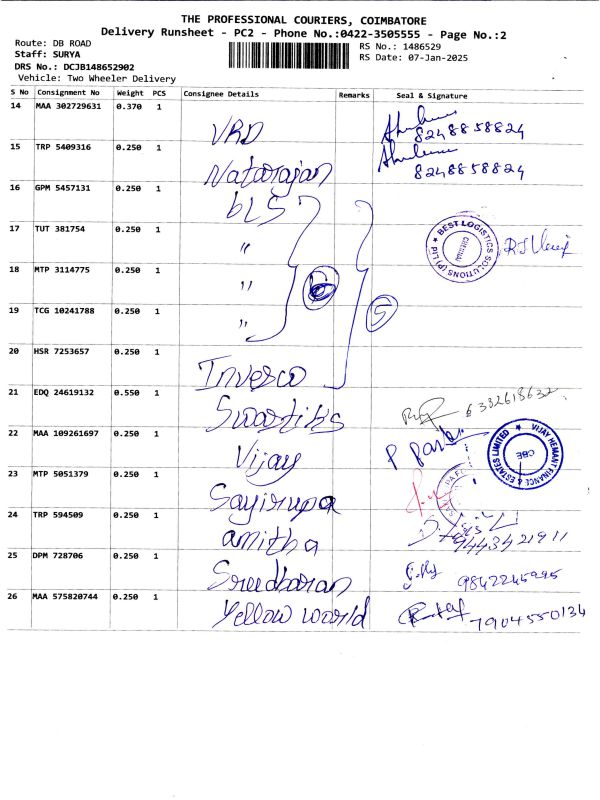 THE PROFESSIONAL COURIERS, COIMBATORE
Delivery Runsheet - PC2 - Phone No.:0422-3505555 - Page No.:2
Route: DB ROAD
Staff: SURYA
DRS No.: DCJB148652902
Vehicle: Two Wheeler Delivery
RS No.: 1486529
RS Date: 07-Jan-2025
S No Consignment No Weight PCS Consignee Details Remarks Seal & Signature
14 MAA 302729631 0.370 1 VRD 8248858824
15 TRP 5409316 0.250 1 Natarajan 8248858824
16 GPM 5457131 0.250 1 bLS
17 TUT 381754 0.250 1 " BEST LOGISTICS SOLUTIONS (P) LTD
18 MTP 3114775 0.250 1 " 6 5
19 TCG 10241788 0.250 1 "
20 HSR 7253657 0.250 1 Invesco
21 EDQ 24619132 0.550 1 Swastiks 6382618632
22 MAA 109261697 0.250 1 Vijay VIJAY HEMANT FINANCE & ESTATES LIMITED CBE
23 MTP 5051379 0.250 1 Sayirupa
24 TRP 594509 0.250 1 amitha 9443421911
25 DPM 728706 0.250 1 Sreedharan 9842245995
26 MAA 575820744 0.250 1 Yellow world 7904550134